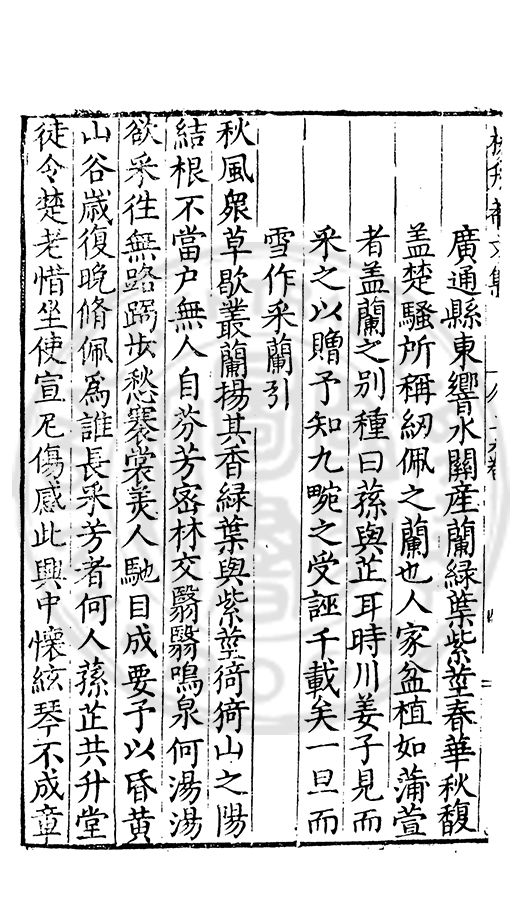 廣通縣東響水關產蘭緑葉紫莖春華秋馥
盖楚騷所稱紉佩之蘭也人家盆植如蒲萱
者盖蘭之别種曰蓀與芷耳時川姜子見而
采之以贈予知九畹之受誣千載矣一旦而
雪作采蘭引
秋風衆草歇叢蘭揚其香緑葉與紫莖猗猗山之陽
結根不當户無人自芬芳宻林交翳翳鳴泉何湯湯
欲采徃無路跼歩愁褰裳美人馳目成要予以昏黄
山谷歲復晚脩佩為誰長采芳者何人蓀芷共升堂
徒令楚老惜坐使宣尼傷感此興中懷絃琴不成章